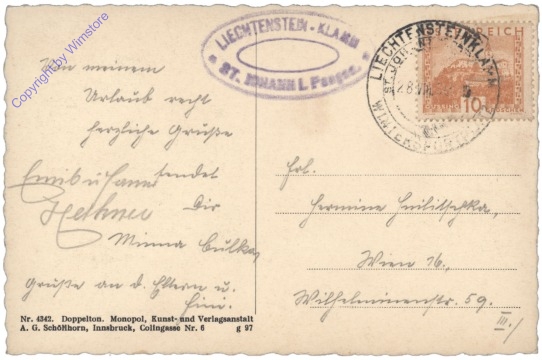 Copyright by Wimstore
LIECHTENSTEIN-KLAMM
ST. JOHANN I. Pongau.
LIECHTENSTEINKLAMM
WINTERSPORT
REICH
10
Von meinem
Urlaub recht
herzliche Grüße
sendet
Dir
Minna
Grüße an d. Eltern u.
Frl.
Hermine
Wien 16.,
Wilhelminenstr. 59.
III./
Nr. 4342. Doppelton. Monopol, Kunst- und Verlagsanstalt
A. G. Schöllhorn, Innsbruck, Colingasse Nr. 6 g 97